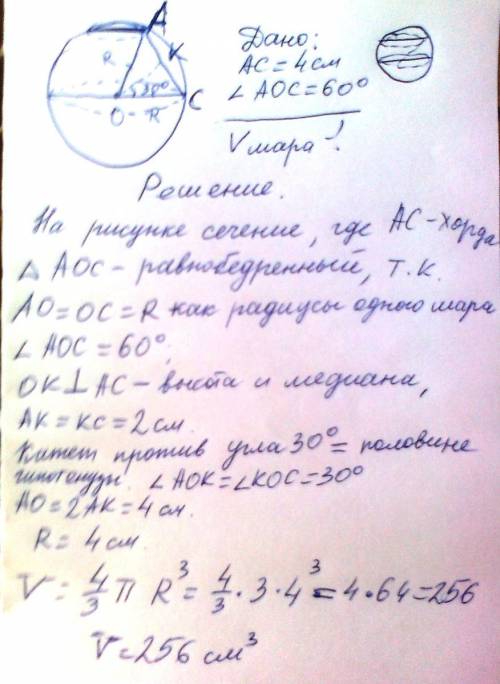 A
R
K
30°
C
O - R
Дано:
AC = 4 см
∠ AOC = 60°
V шара - ?
Решение.
На рисунке сечение, где AC - хорда
△ AOC - равнобедренный, т.к.
AO = OC = R как радиусы одного шара
∠ AOC = 60°,
OK ⊥ AC - высота и медиана,
AK = KC = 2 см.
Катет против угла 30° = половине
гипотенузы. ∠ AOK = ∠ KOC = 30°
AO = 2AK = 4 см.
R = 4 см.
V = 4/3 π R³ = 4/3 · 3 · 4³ = 4 · 64 = 256
V = 256 см³